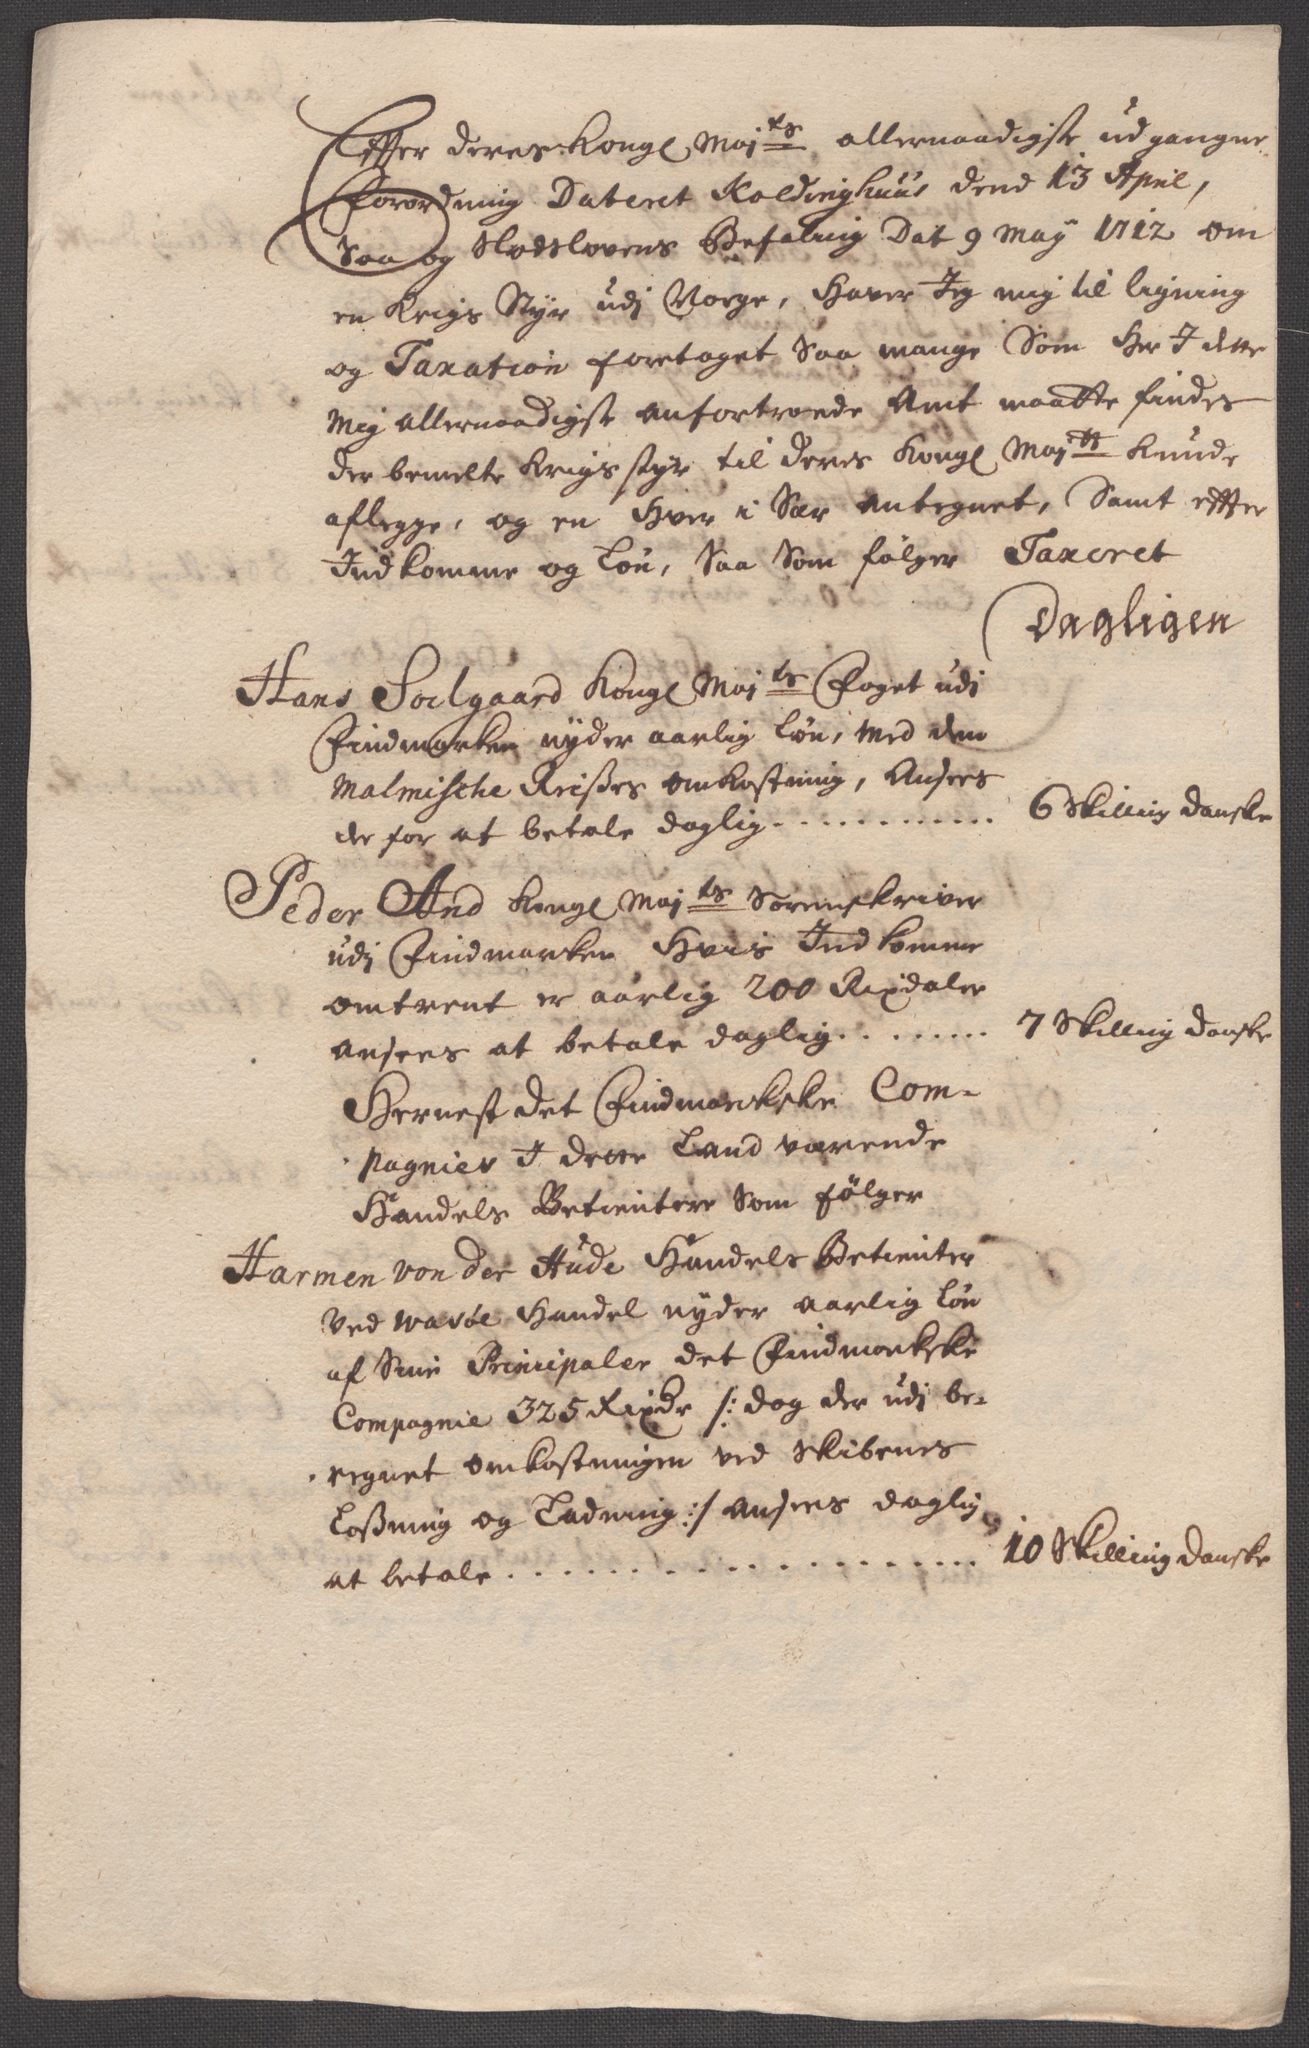 Effter deres Kongl Maj:ts allernaadigste udgangne
Forordning Dateret Koldinghuus dend 13 April,
Saa og Slodslovens Befaling Dat 9 May 1712 om
en Krigs Styr udj Norge, Haver Jeg mig til ligning
og Taxation foretaget Saa mange Som Her I dette
Mig allernaadigst anfortroede Amt maatte findes
der bemelte Krigs styr til deres Kongl Maj:tt Kunde
aflegge, og en Hver i Sær antegnet, Samt effter
Indkomme og Løn, Saa Som følger Taxeret
Dagligen
Hans Soelgaard Kongl Maj:ts Foget udj
Findmarken nyder aarlig Løn, med den
Malmische Reißes omkostning, Ansees
der for at betale daglig - - - - - - - - - - - 6 Skilling danske
Peder And Kongl Maj:ts Sorenskriver
udj Findmarken Hvis Indkomme
omtrent er aarlig 200 Rixdaler
ansees at betale daglig - - - - - - - - 7 Skilling danske
Hernest det Findmarkske Com-
pagnies I dette Land værende
Handels Betientere Som følger
Harmen von der Hude Handels Betienter
ved Wasøe Handel nyder aarlig Løn
af Sine Principaler det Findmarkske
Compagnie 325 Rixdr /: dog der udj be-
regnet omkostningen ved Skibenes
Loßning og Ladning :/ ansees daglig
at betale - - - - - - - - - - - - - - - - - - 10 Skilling danske